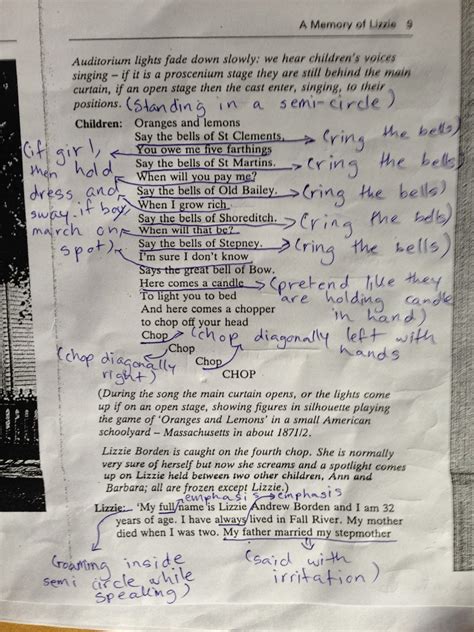 A Memory of Lizzie 9
Auditorium lights fade down slowly: we hear children's voices
singing – if it is a proscenium stage they are still behind the main
curtain, if an open stage then the cast enter, singing, to their
positions. (Standing in a semi-circle)
Children: Oranges and lemons
Say the bells of St Clements, (ring the bells)
(if girl, You owe me five farthings
then hold Say the bells of St Martins. (ring the bells
When will you pay me?
dress and Say the bells of Old Bailey. (ring the bells)
sway. if boy, When I grow rich
Say the bells of Shoreditch. (ring the bells)
march on When will that be?
spot) Say the bells of Stepney. (ring the bells)
I'm sure I don't know
Says the great bell of Bow.
Here comes a candle (pretend like they
To light you to bed are holding candle
And here comes a chopper in hand)
to chop off your head
Chop (chop diagonally left with
hands
(chop diagonally Chop
right) Chop
CHOP
(During the song the main curtain opens, or the lights come
up if on an open stage, showing figures in silhouette playing
the game of 'Oranges and Lemons' in a small American
schoolyard – Massachusetts in about 1871/2.
Lizzie Borden is caught on the fourth chop. She is normally
very sure of herself but now she screams and a spotlight comes
up on Lizzie held between two other children, Ann and
Barbara; all are frozen except Lizzie.)
emphasis emphasis
Lizzie: 'My full name is Lizzie Andrew Borden and I am 32
years of age. I have always lived in Fall River. My mother
died when I was two. My father married my stepmother
(roaming inside
semi circle while
speaking)
(said with
irritation)